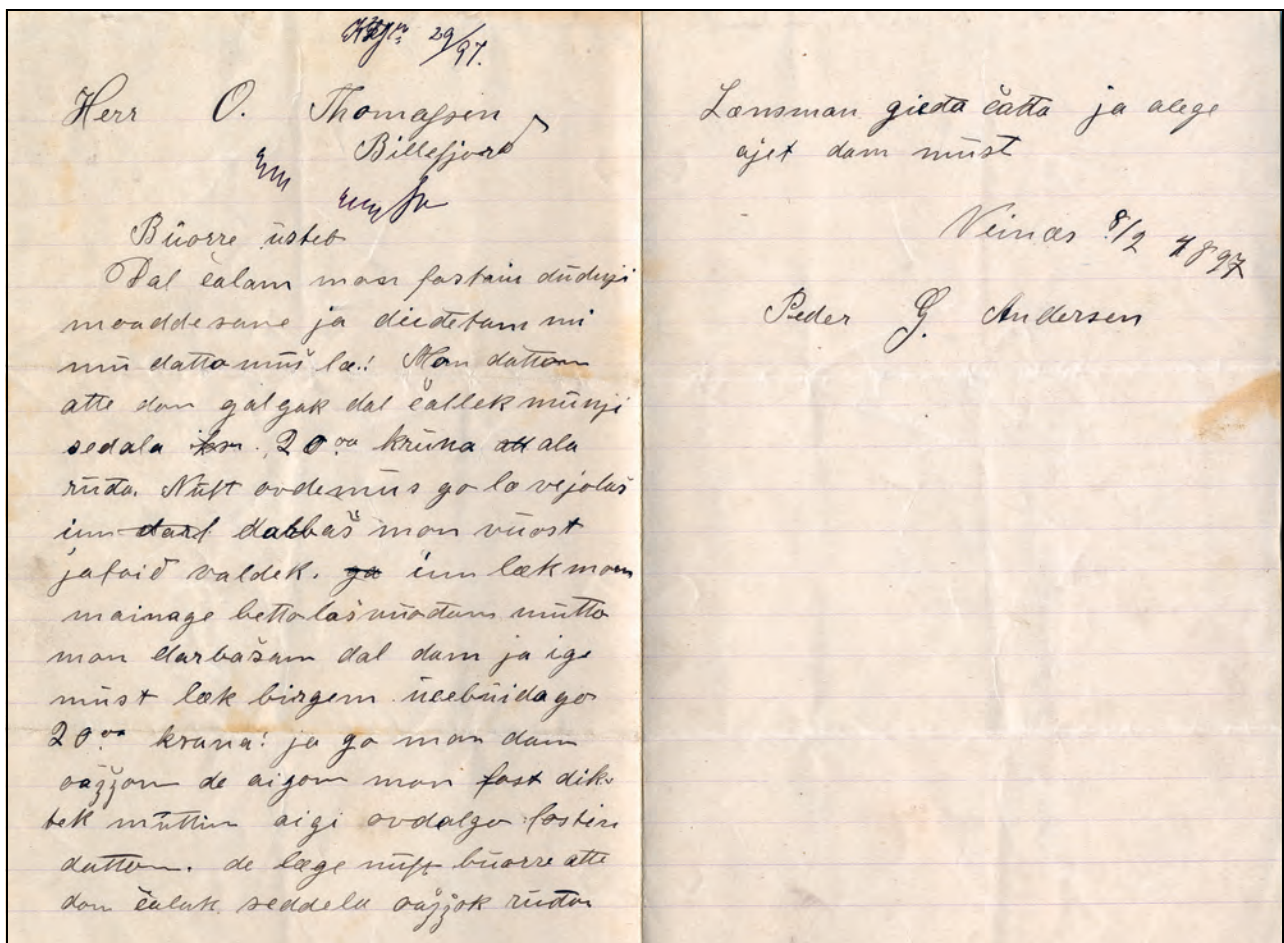 29/97.
Herr O. Thomassen
Billefjord
Büorre üsteb
Dal čalam mon fastain düdnji
moaddesane ja diedetam mi
mü datto müst læ! Mon dattom
atte don galgak dal čallek münji
sedala 20.00 krüna ala
rüđa. Nüft ovdemüs go læ vejolaš
im darbaš mon vüost
jafaid valdek. im læk mon
mainage bettolašvüođam mütto
mon darbašam dal dam ja ige
müst læk birgem üccbüidago
20.00 krana! ja go mon dam
oažžom de aigom mon fast dik-
tek müttin aigi ovdalgo fastin
dattom. de læge nüft büorre atte
don čalak seddela oažžok rüđa
Lænsman gieđa čađa ja alege
ajet dam müst
Veinæs 8/2 1897
Peder G. Andersen